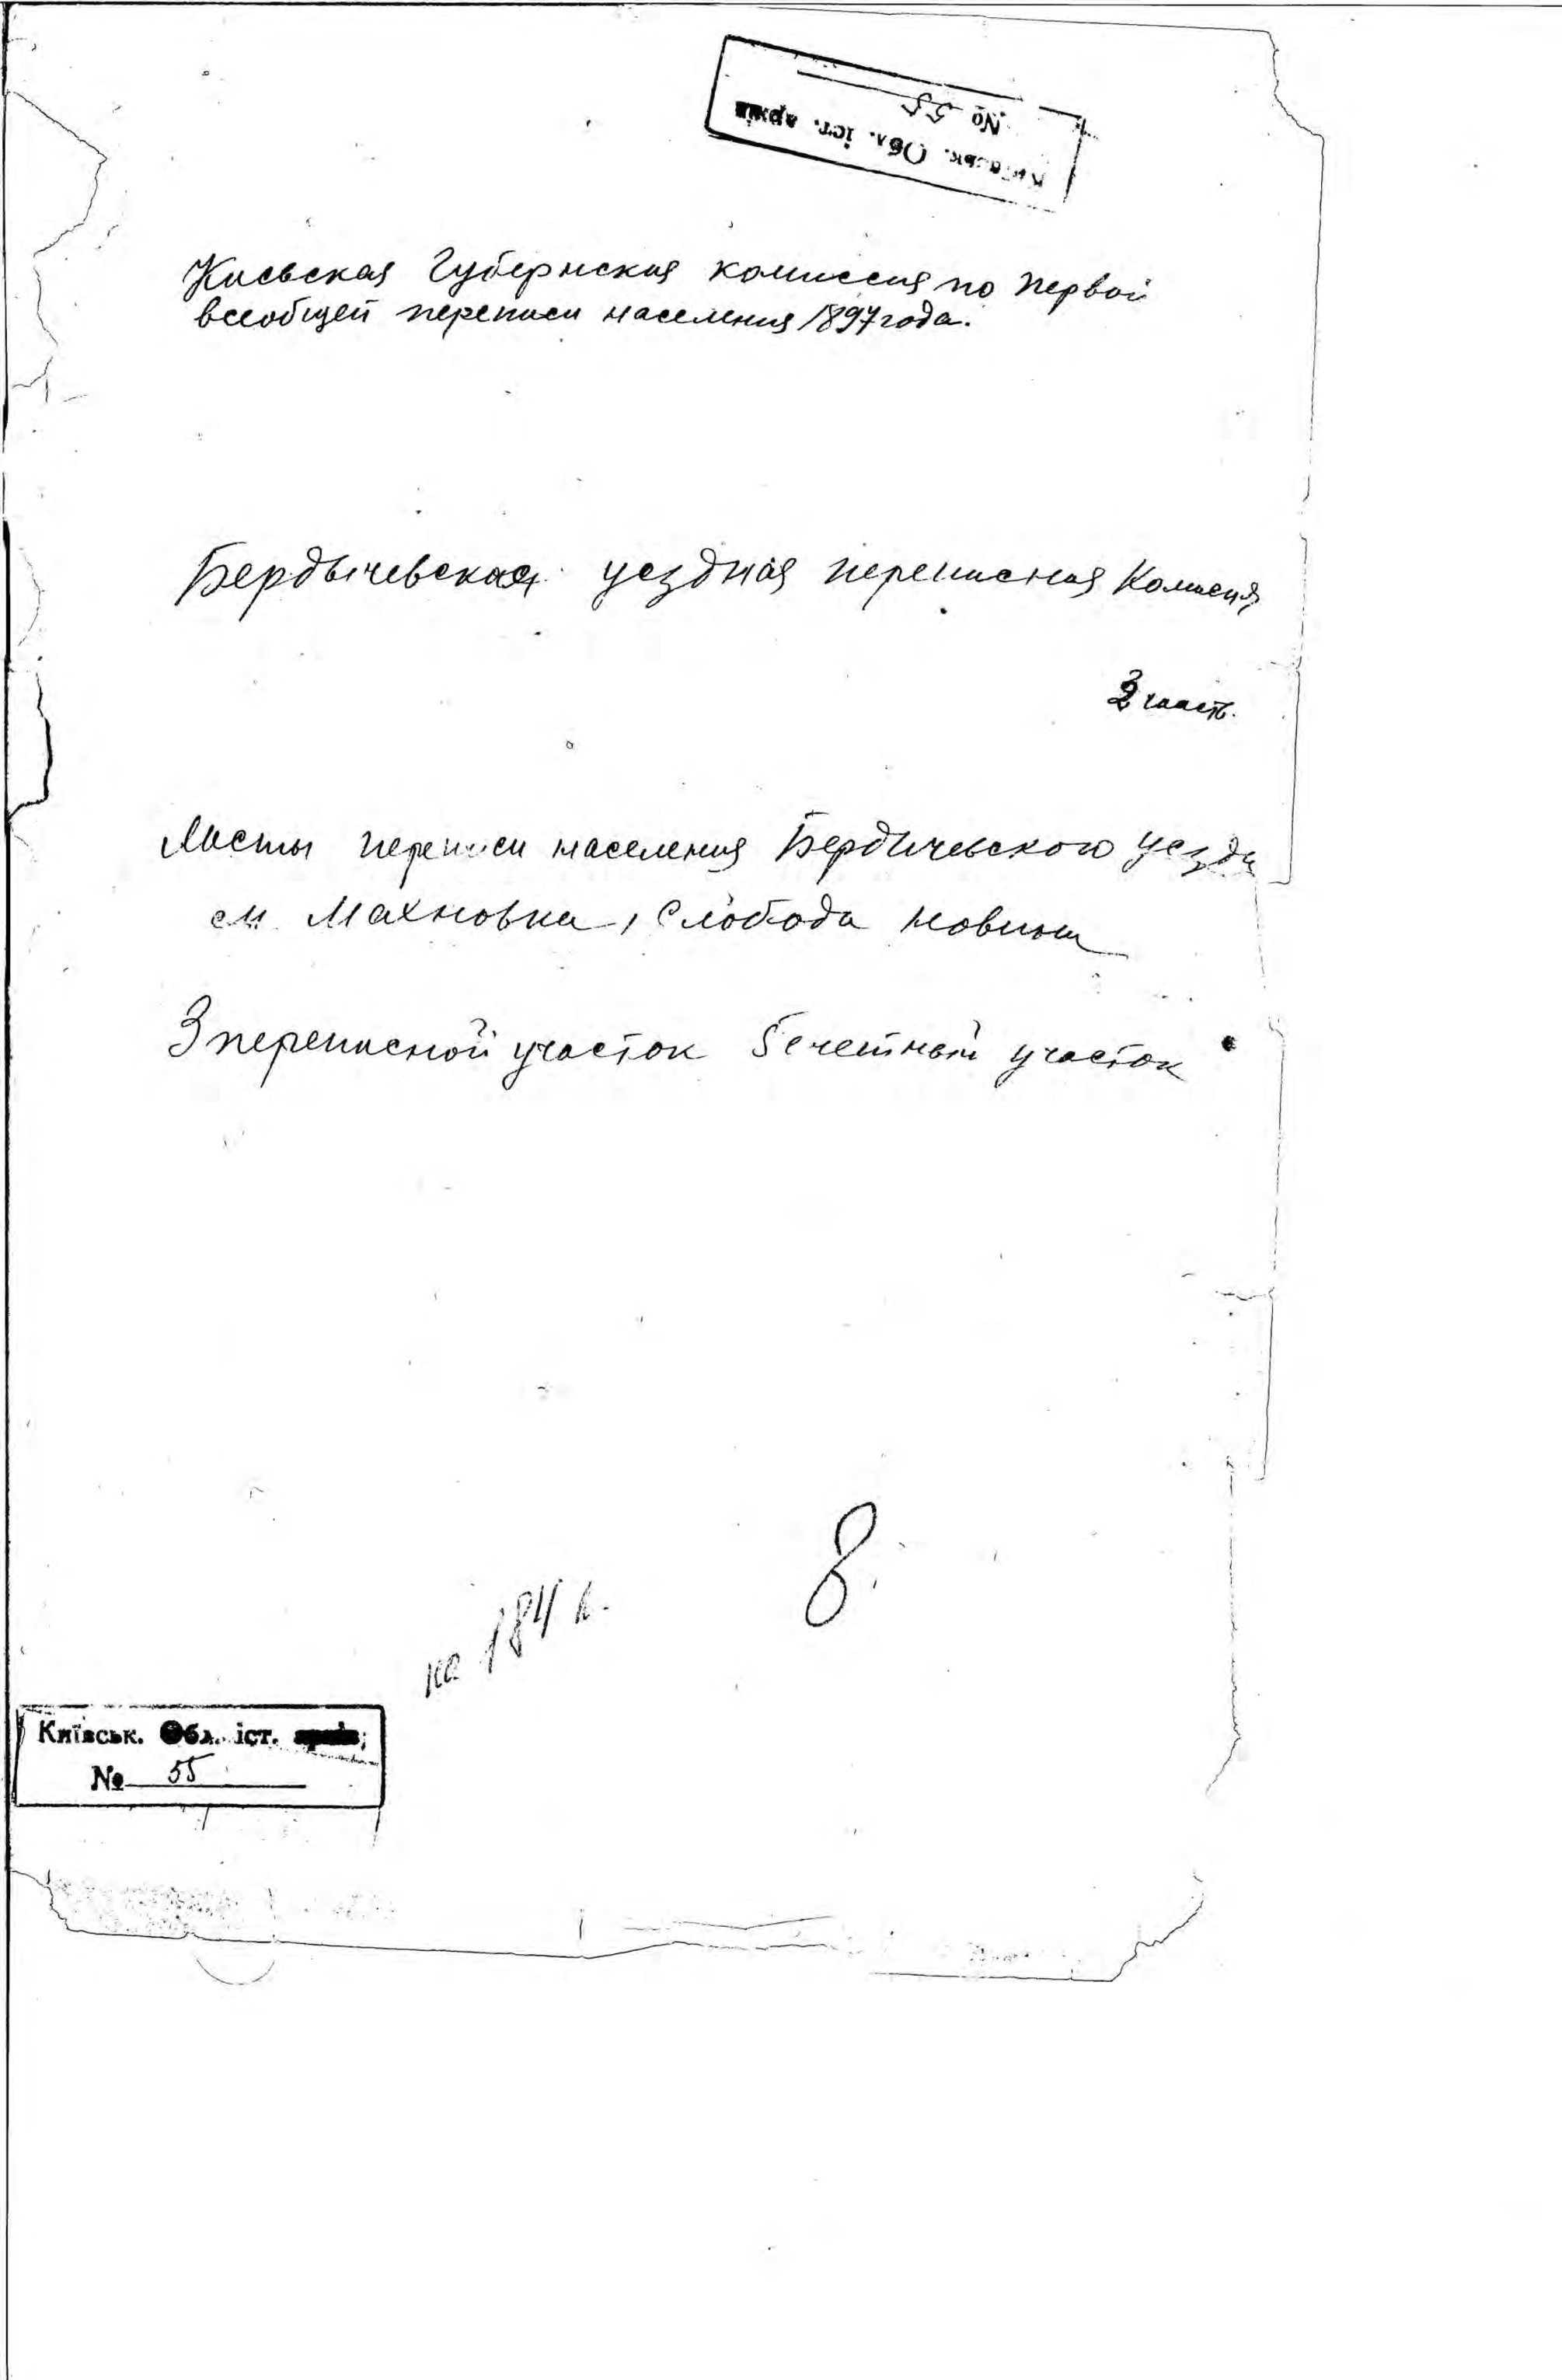 Київськ. Обл. іст. архів
№ 55
Киевская Губернская комиссия по первой
всеобщей переписи населения 1897 года.
Бердычевская уездная переписная Комисия
3 часть.
Листы переписи населения Бердичевского уезда
м. Махновка, Слобода
3 переписной участок 5 счетный участок
8.
на 184 л.
Київськ. Обл. іст. архів;
№ 55